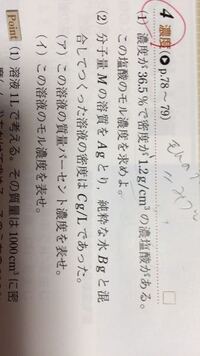 4 濃度 ▶p.78〜79)
(1) 濃度が36.5%で密度が1.2g/cm³の濃塩酸がある。
この塩酸のモル濃度を求めよ。
(2) 分子量Mの溶質をAgとり，純粋な水Bgと混
合してつくった溶液の密度はCg/Lであった。
(ア) この溶液の質量パーセント濃度を表せ。
(イ) この溶液のモル濃度を表せ。
Point
(1) 溶液1Lで考える。その質量は1000cm³に密